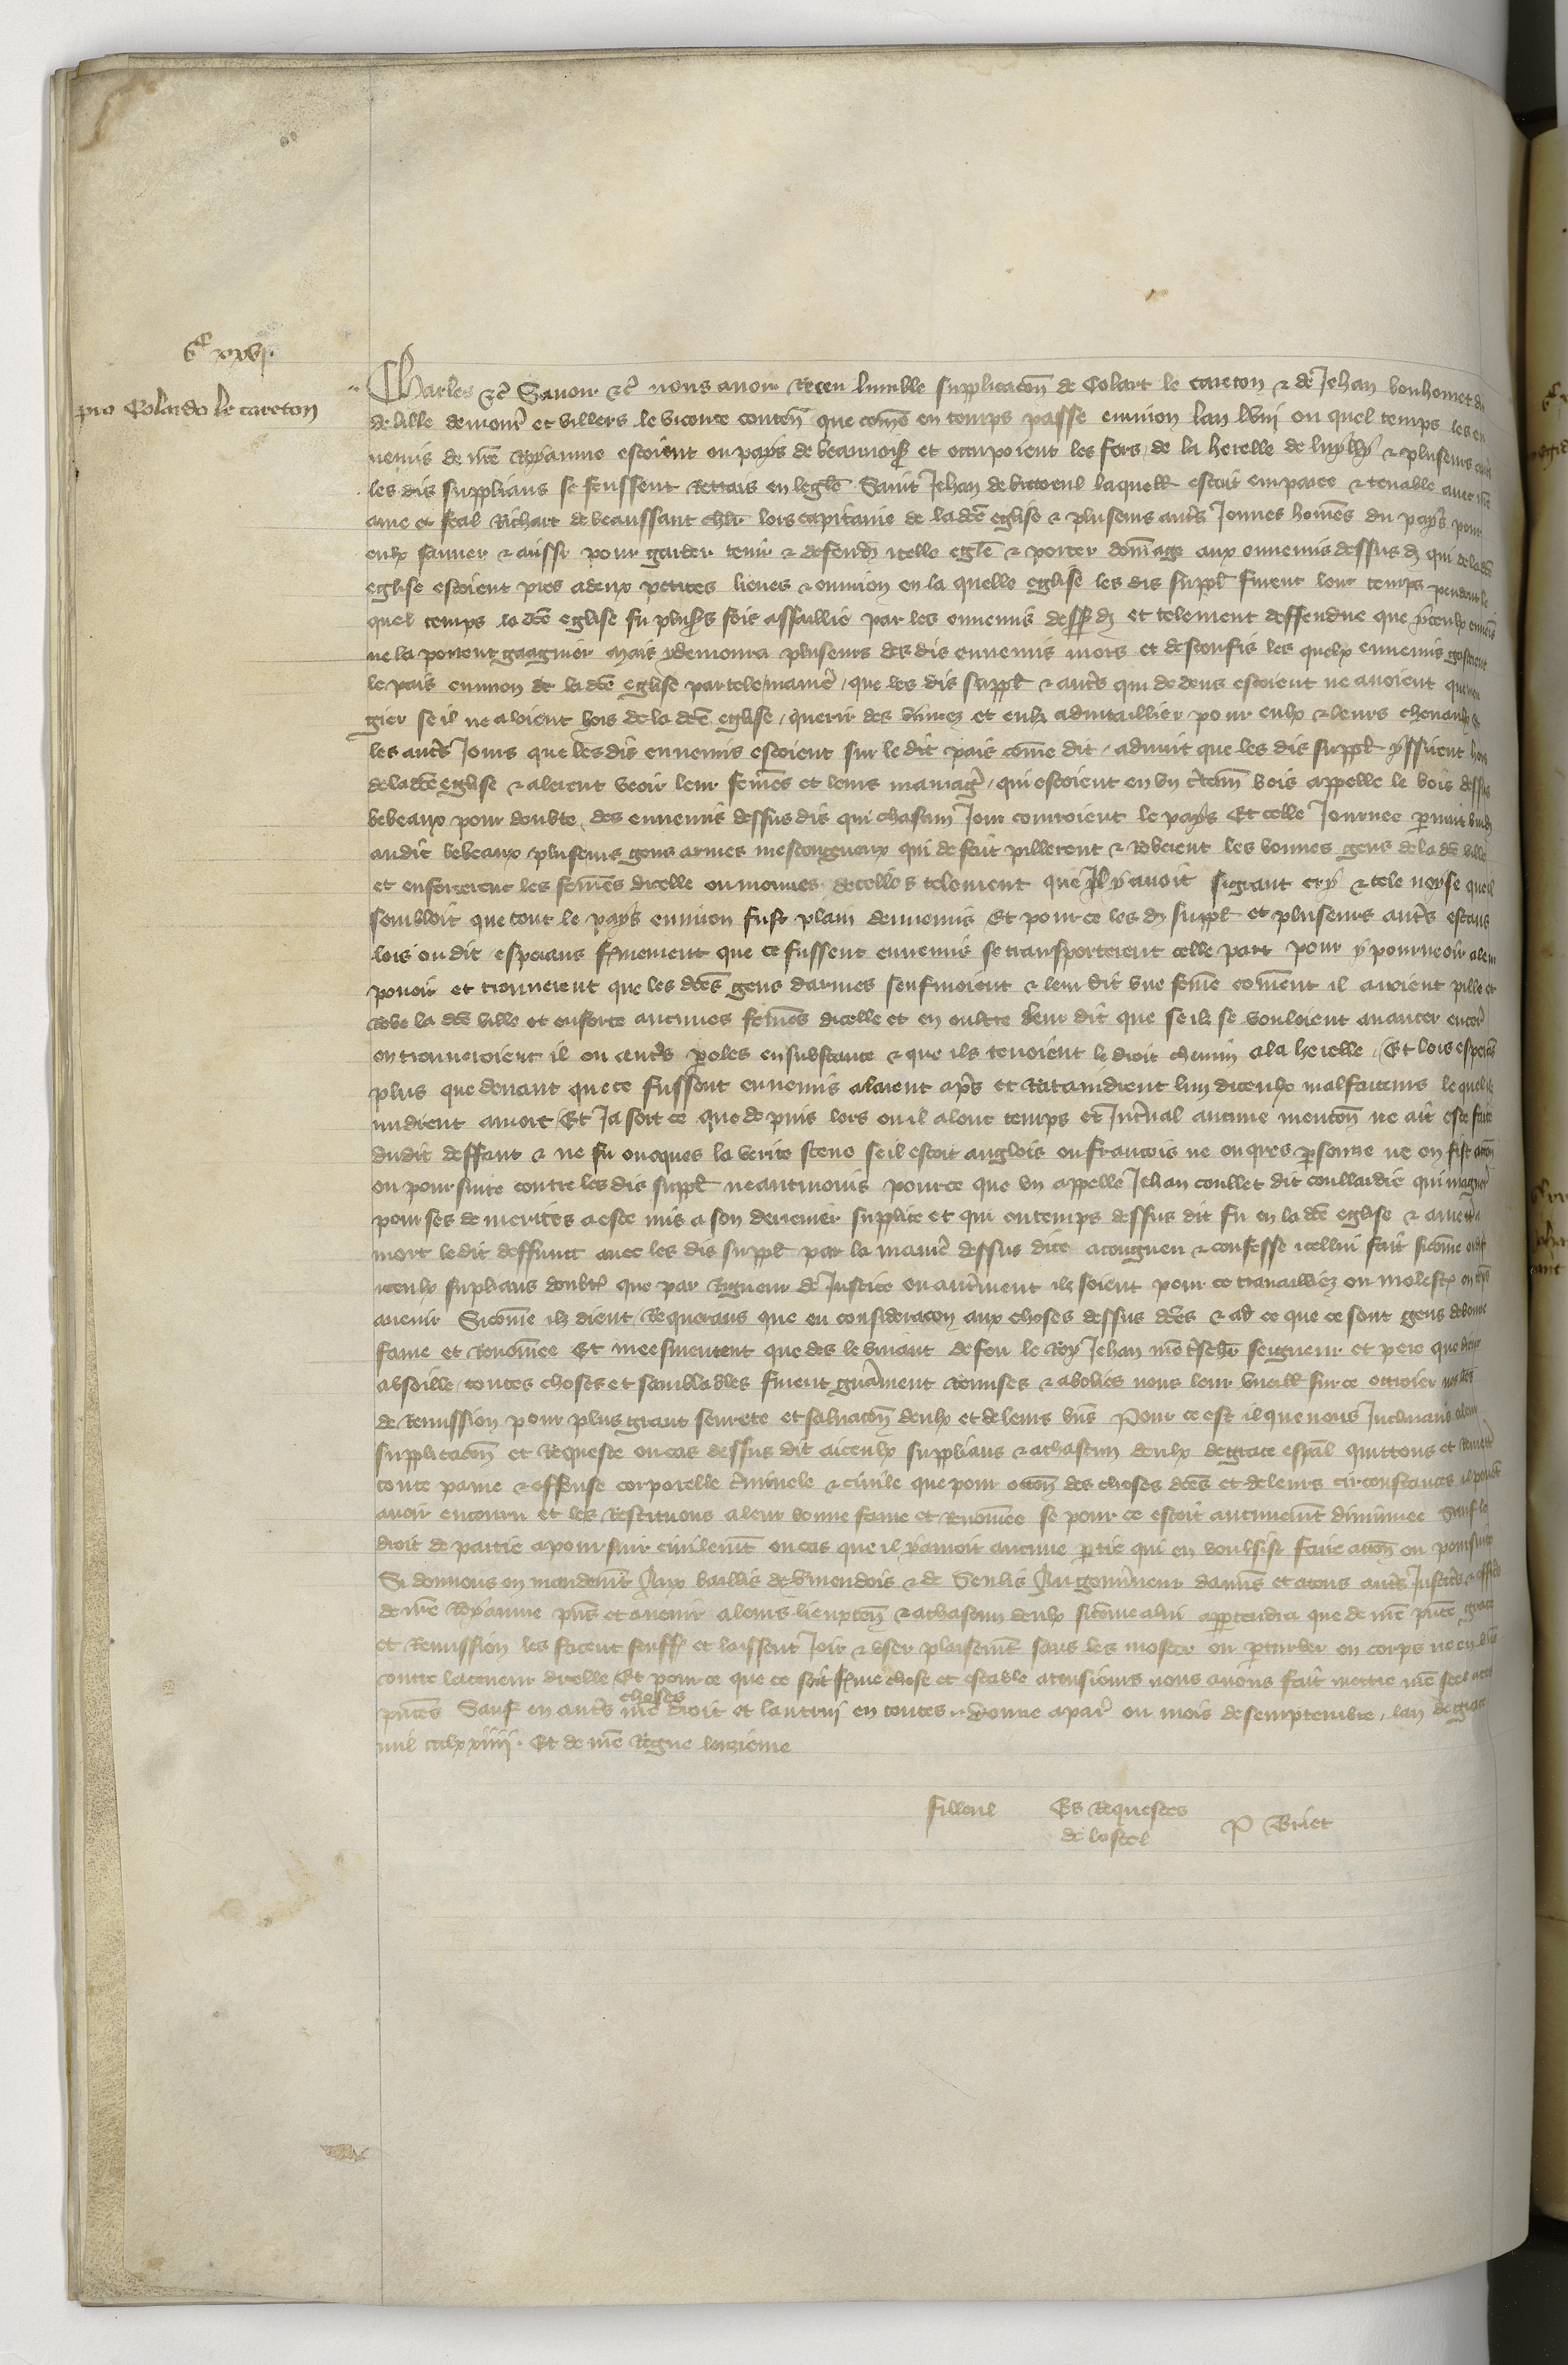 vc xxvj.
pro Colardo le careton
Charles &c Savoir &c nous avoir Receu lumble supplicacon de Colart le careton & de Jehan bonhomet
de lille demour et villers le viconte conten que come en temps passe environ lan lviij ou quel temps les en
nemis de nre Royaume estoient ou pays de beauvoisis et occupoient les fors de la herelle de & plusieurs
les dis supplians se feussent Retrais en leglise Saint Jehan de laquelle estoit emparee & tenable avec nre
ame et feal Richart de beaussaut chlr lors capitaine de la dce eglise & plusieurs autres Jeunes homes du pays pour
eulx sauver & aussi pour garder tenir & defendre icelle eglise & porter domage aux ennemis dessus d qui de la dce
eglise estoient pres a deux petites lieues & environ en la quelle eglise les dis suppl furent lonc temps pendant le
quel temps la dce eglise fu plusrs fois assaillie par les ennemis dessus d et telement deffendue que yceulx ennemis
ne la porent gaagnier mais y demoura pluseurs des dis ennemis mors et desconfis les quelx ennemis gastoient
le pais environ de la dce eglise par tele maniere que les dis suppl & autrs qui dedens estoient ne avoient que men
gier se il ne aloient hors de la dce eglise querir des vivrez et eulx advitaillier pour eulx & leurs chevaulx &
les autrs Jours que les dis ennemis estoient sur le dit pais come dit advint que les dis suppl yssirent hors
de la dce eglise & alerent veoir leur femes et leurs mainages qui estoient en un certain bois appelle le bois dessus
bebeaux pour doubte des ennemis dessus dis qui chascun Jour couroient le pays Et celle Journee
audit bebeaux pluseurs gens armes mescongneux qui de fait pillerent & Roberent les bonnes gens de la dce ville
et enforcerent les femes dicelle ou aucunes dicelles telement que Il y avoit si grant cry & tele noyse que il
sembloit que tout le pays environ fust plain dennemis Et pour ce les d suppl et pluseurs autrs estans
lors ou dit esperans fermement que ce fussent ennemis se transporterent celle part pour y pourveoir a leur
povoir et trouverent que les dces gens darmes senfuioient & leur dit une feme coment il avoient pille et
Robe la dce ville et enforce aucunes femes dicelle et en oultre leur dit que se ilz se vouloient avancer encor
en trouveroient il ou autrs paroles en substance & que ils tenoient le droit chemin a la herelle Et lors esperans
plus que devant que ce fussent ennemis alerent aprs et lun diceulx malfaiteurs le quel ilz
mirent a mort Et Ja soit ce que depuis lors ou il a lonc temps et Interval aucune mencon ne ait este faite
dudit deffaut & ne fu oncques la verite sceue se il estoit anglois ou francois ne onqres persone ne en fist accon
ou poursuite contre les dis suppl neantmoins pour ce que un appelle Jehan coullet dit coullardie qui
pour ses demerites a este mis a son derrenier suplice et qui en temps dessus dit fu en la dce eglise & a mettre a
mort ledit deffunct avec les dis suppl par la maniere dessus dite a congneu & confesse icellui fait sicome
iceulx suplians doubtent que par Rigueur de Justice ou autrement ilz soient pour ce travailliez ou molestez ou temps
avenir Sicome ilz dient Requerans que en consideracon aux choses dessus dces & ad ce que ce sont gens de bonne
fame et Renomee Et que des le vivant de feu le Roy Jehan nre tschr seigneur et pere que dieux
absoille toutes choses et samblables furent generament Remises & abolies nous leur vueill sur ce ottroier nos lres
de Remission pour plus grant seurete et salvacon deulx et de leurs biens Pour ce est il que nous Inclinans a leur
supplicacon et Requeste ou cas dessus dit a iceulx supplians & a chascun deulx de grace espal quittons et Remett
toute paine & offense corporelle criminele & civile que pour occon des choses dces et de leurs circonstances il pevent
avoir encouru et les Restituons a leur bonne fame et Renomee se pour ce estoit aucunement diminuee sauf le
droit de partie a poursuir civilement ou cas que il y auroit aucune partie qui en voulsist faire accon ou poursuite
Si donnons en mandement Aux baillis de Vermendois & de Senlis Au gouverneur damiens et a tous autrs Justiciers & offic
de nre Royaume pns et avenir a leurs lieuxten & a chascun deulx sicome a lui appartendra que de nre pnte grace
et Remission les facent seuffrent et laissent Joir & user plainement sans les molester ou perturber en corps ne en biens
contre la teneur dicelle Et pour ce que ce soit ferme chose et estable a tousiours nous avons fait mettre nre seel a ces
pntes Sauf en autrs choses nre droit et lautrui en toutes. Donne a paris ou mois de septembre lan de grace
mil ccclxxiiij. Et de nre Regne lonzieme
filleul Es Requestes de lostel P Briet